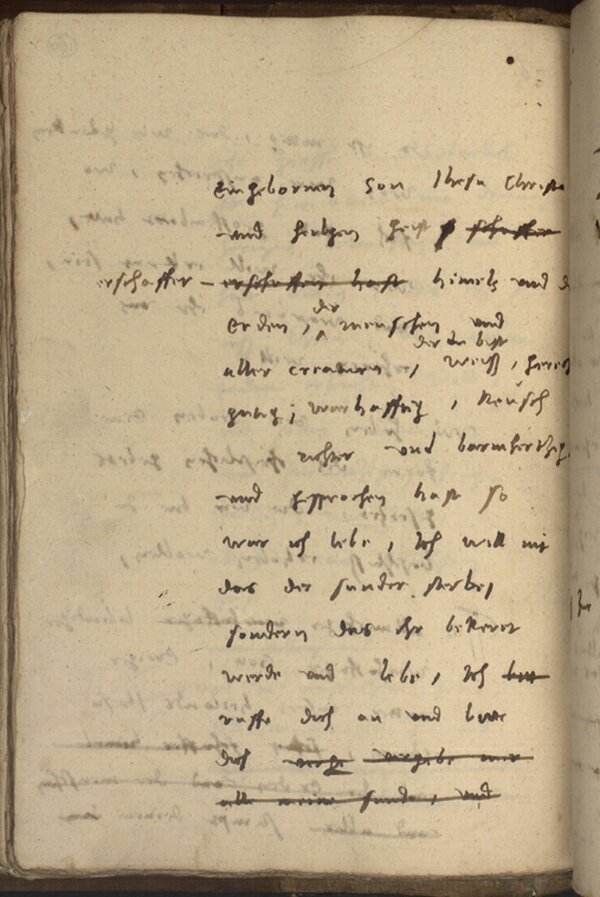 Eingebornen Son Ihesu Christ
und heilgen geist schaffer
erschaffer – erschaffen hast himels und d
Erden, der menschen und
aller creaturn, der du bist weiß, gerec
gutig, warhafftig, keusch
richter und barmhertzig
und gesprochen hast so
war ich lebe, Ich will nit
das der sunder sterbe,
sondern das ehr bekeret
werde und lebe, Ich bitt
ruffe dich an und bitte
dich vergebe mir
alle meine sunde, und